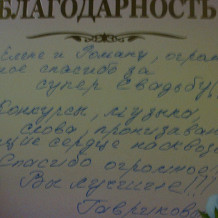 БЛАГОДАРНОСТЬ
Елене и Роману, огром
ное спасибо за
супер Свадьбу!
Конкурсы, музыка,
слова, пронизываю
щие сердце насквозь
Спасибо огромное!
Вы лучшие!!!
Гавриково